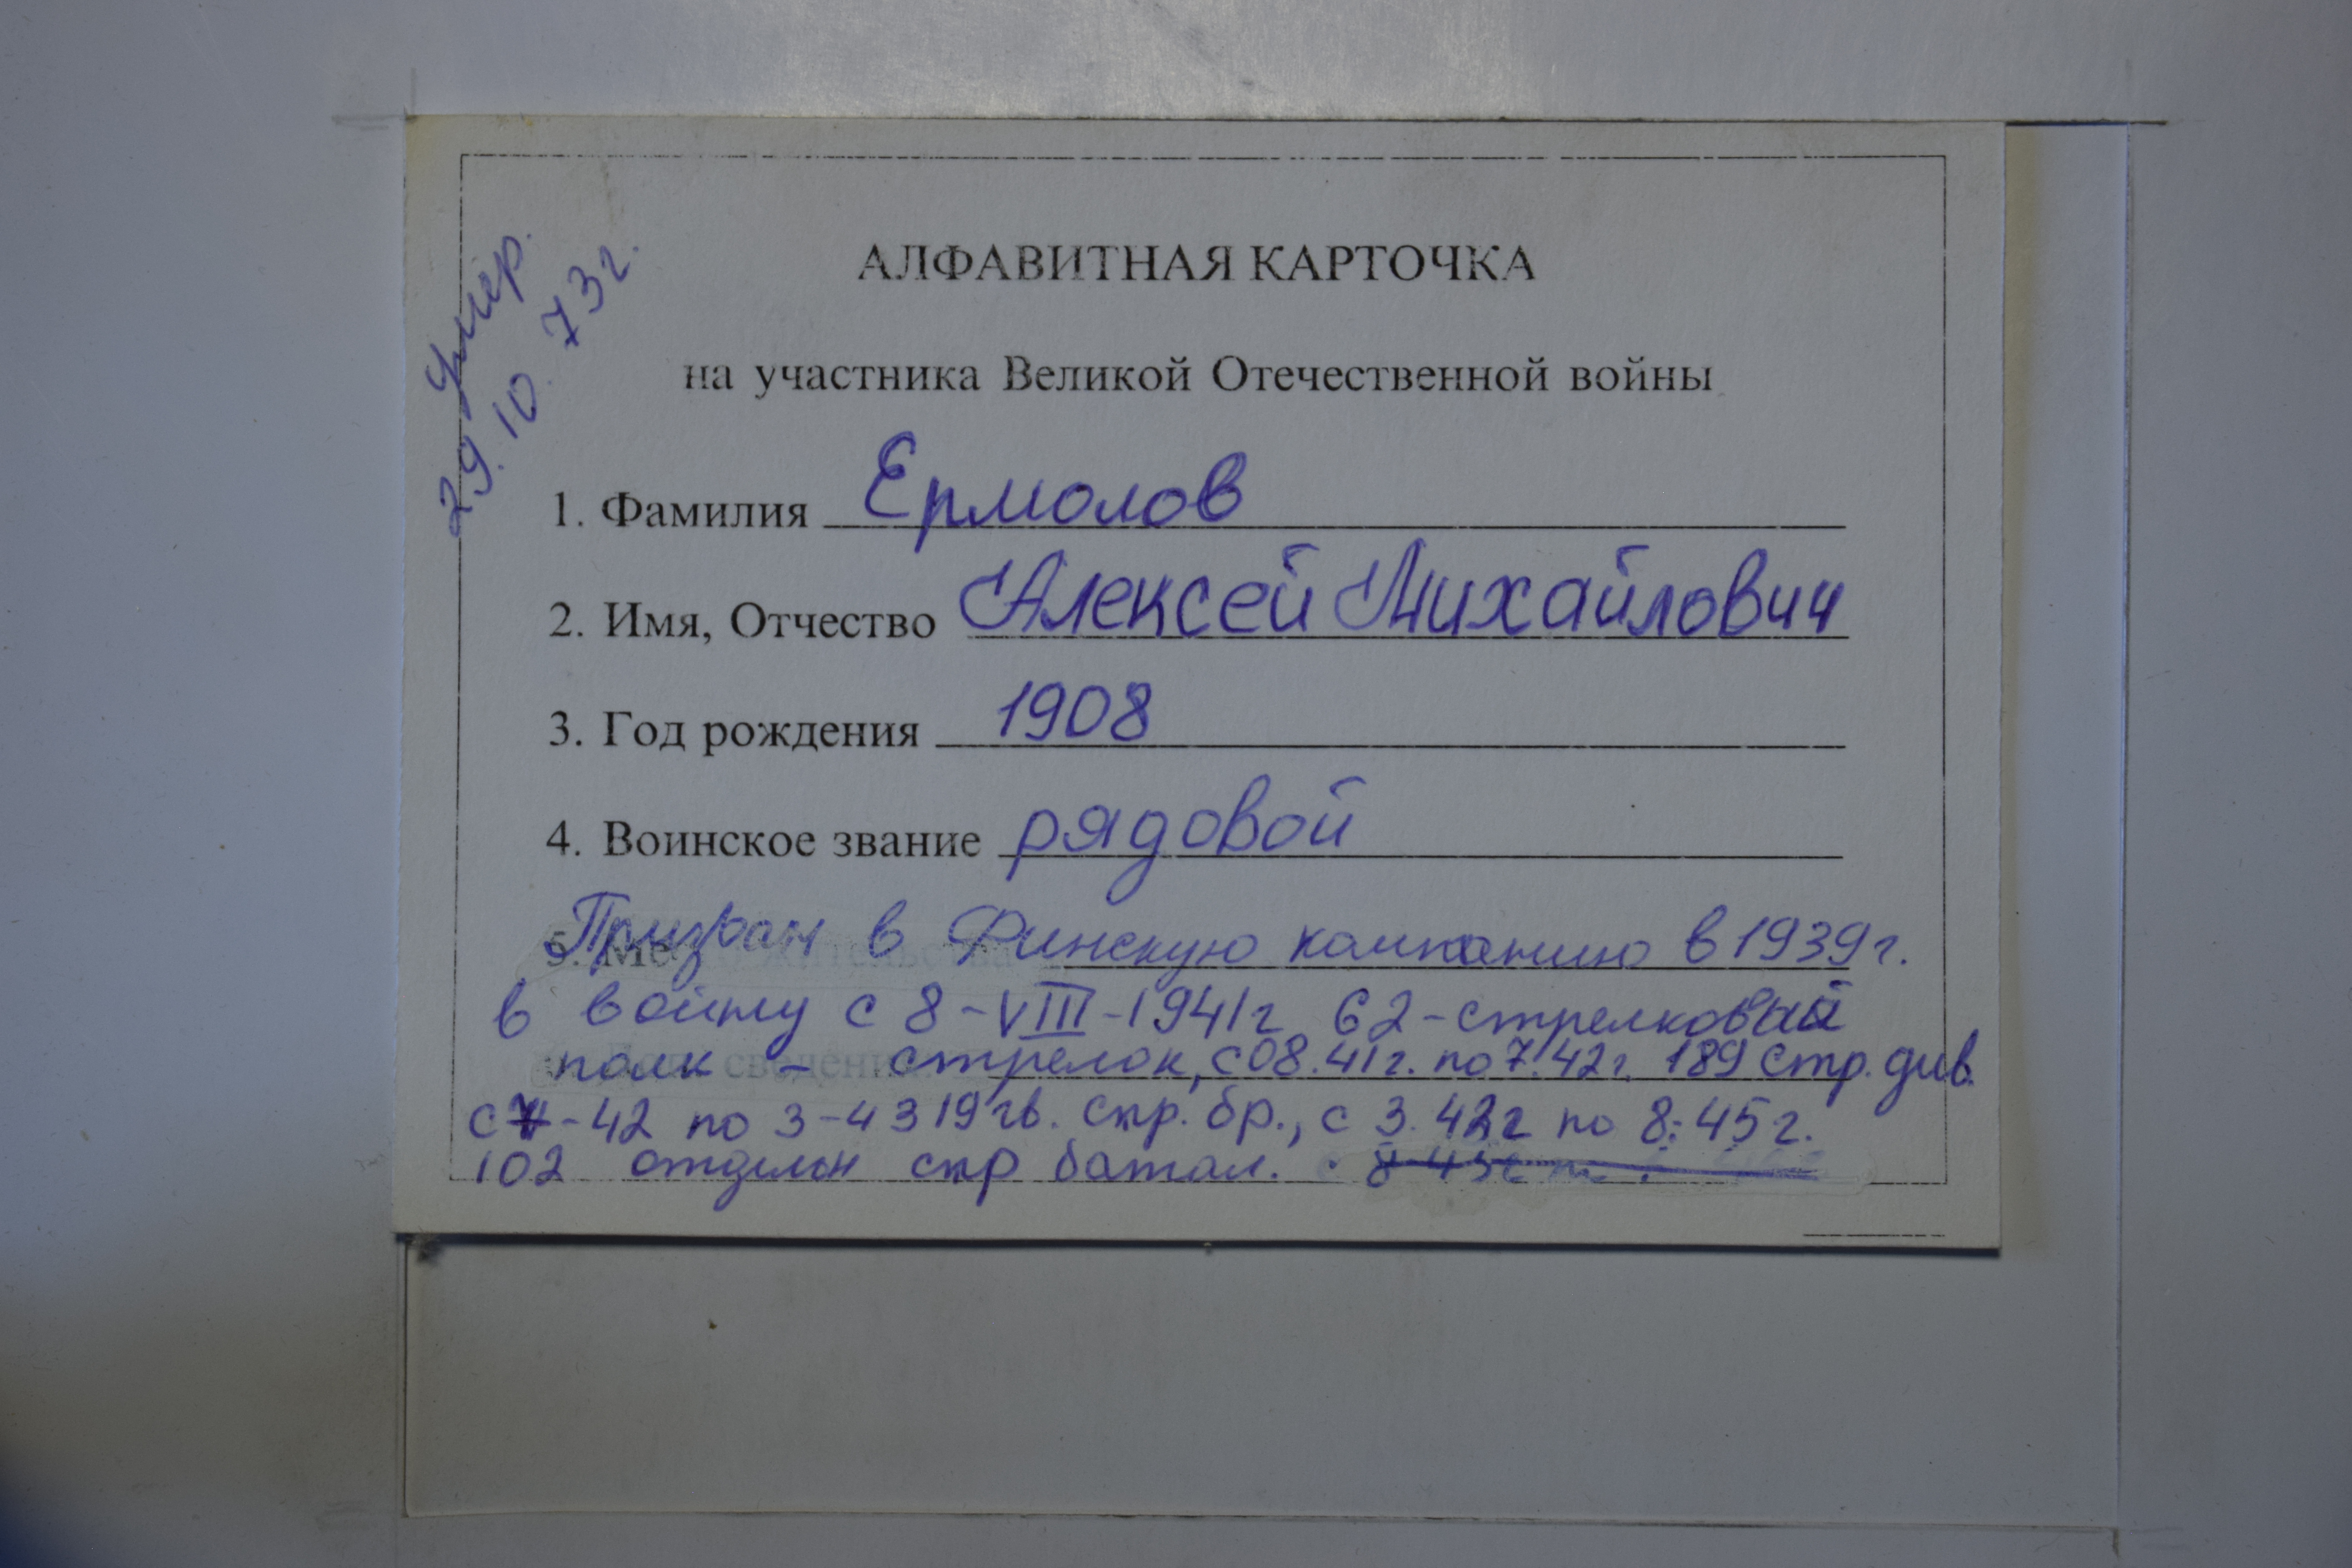 Умер.
29.10.73г.
АЛФАВИТНАЯ КАРТОЧКА
на участника Великой Отечественной войны
1. Фамилия Ермолов
2. Имя, Отчество Алексей Михайлович
3. Год рождения 1908
4. Воинское звание рядовой
Призван в Финскую кампанию в 1939г.
в войну с 8-VIII-1941г 62-стрелковый
полк - стрелок, с 08.41г. по 7.42г. 189 стр. див.
с 7-42 по 3-43 19 гв. стр. бр., с 3.42г по 8.45г.
102 отдельн стр батал.